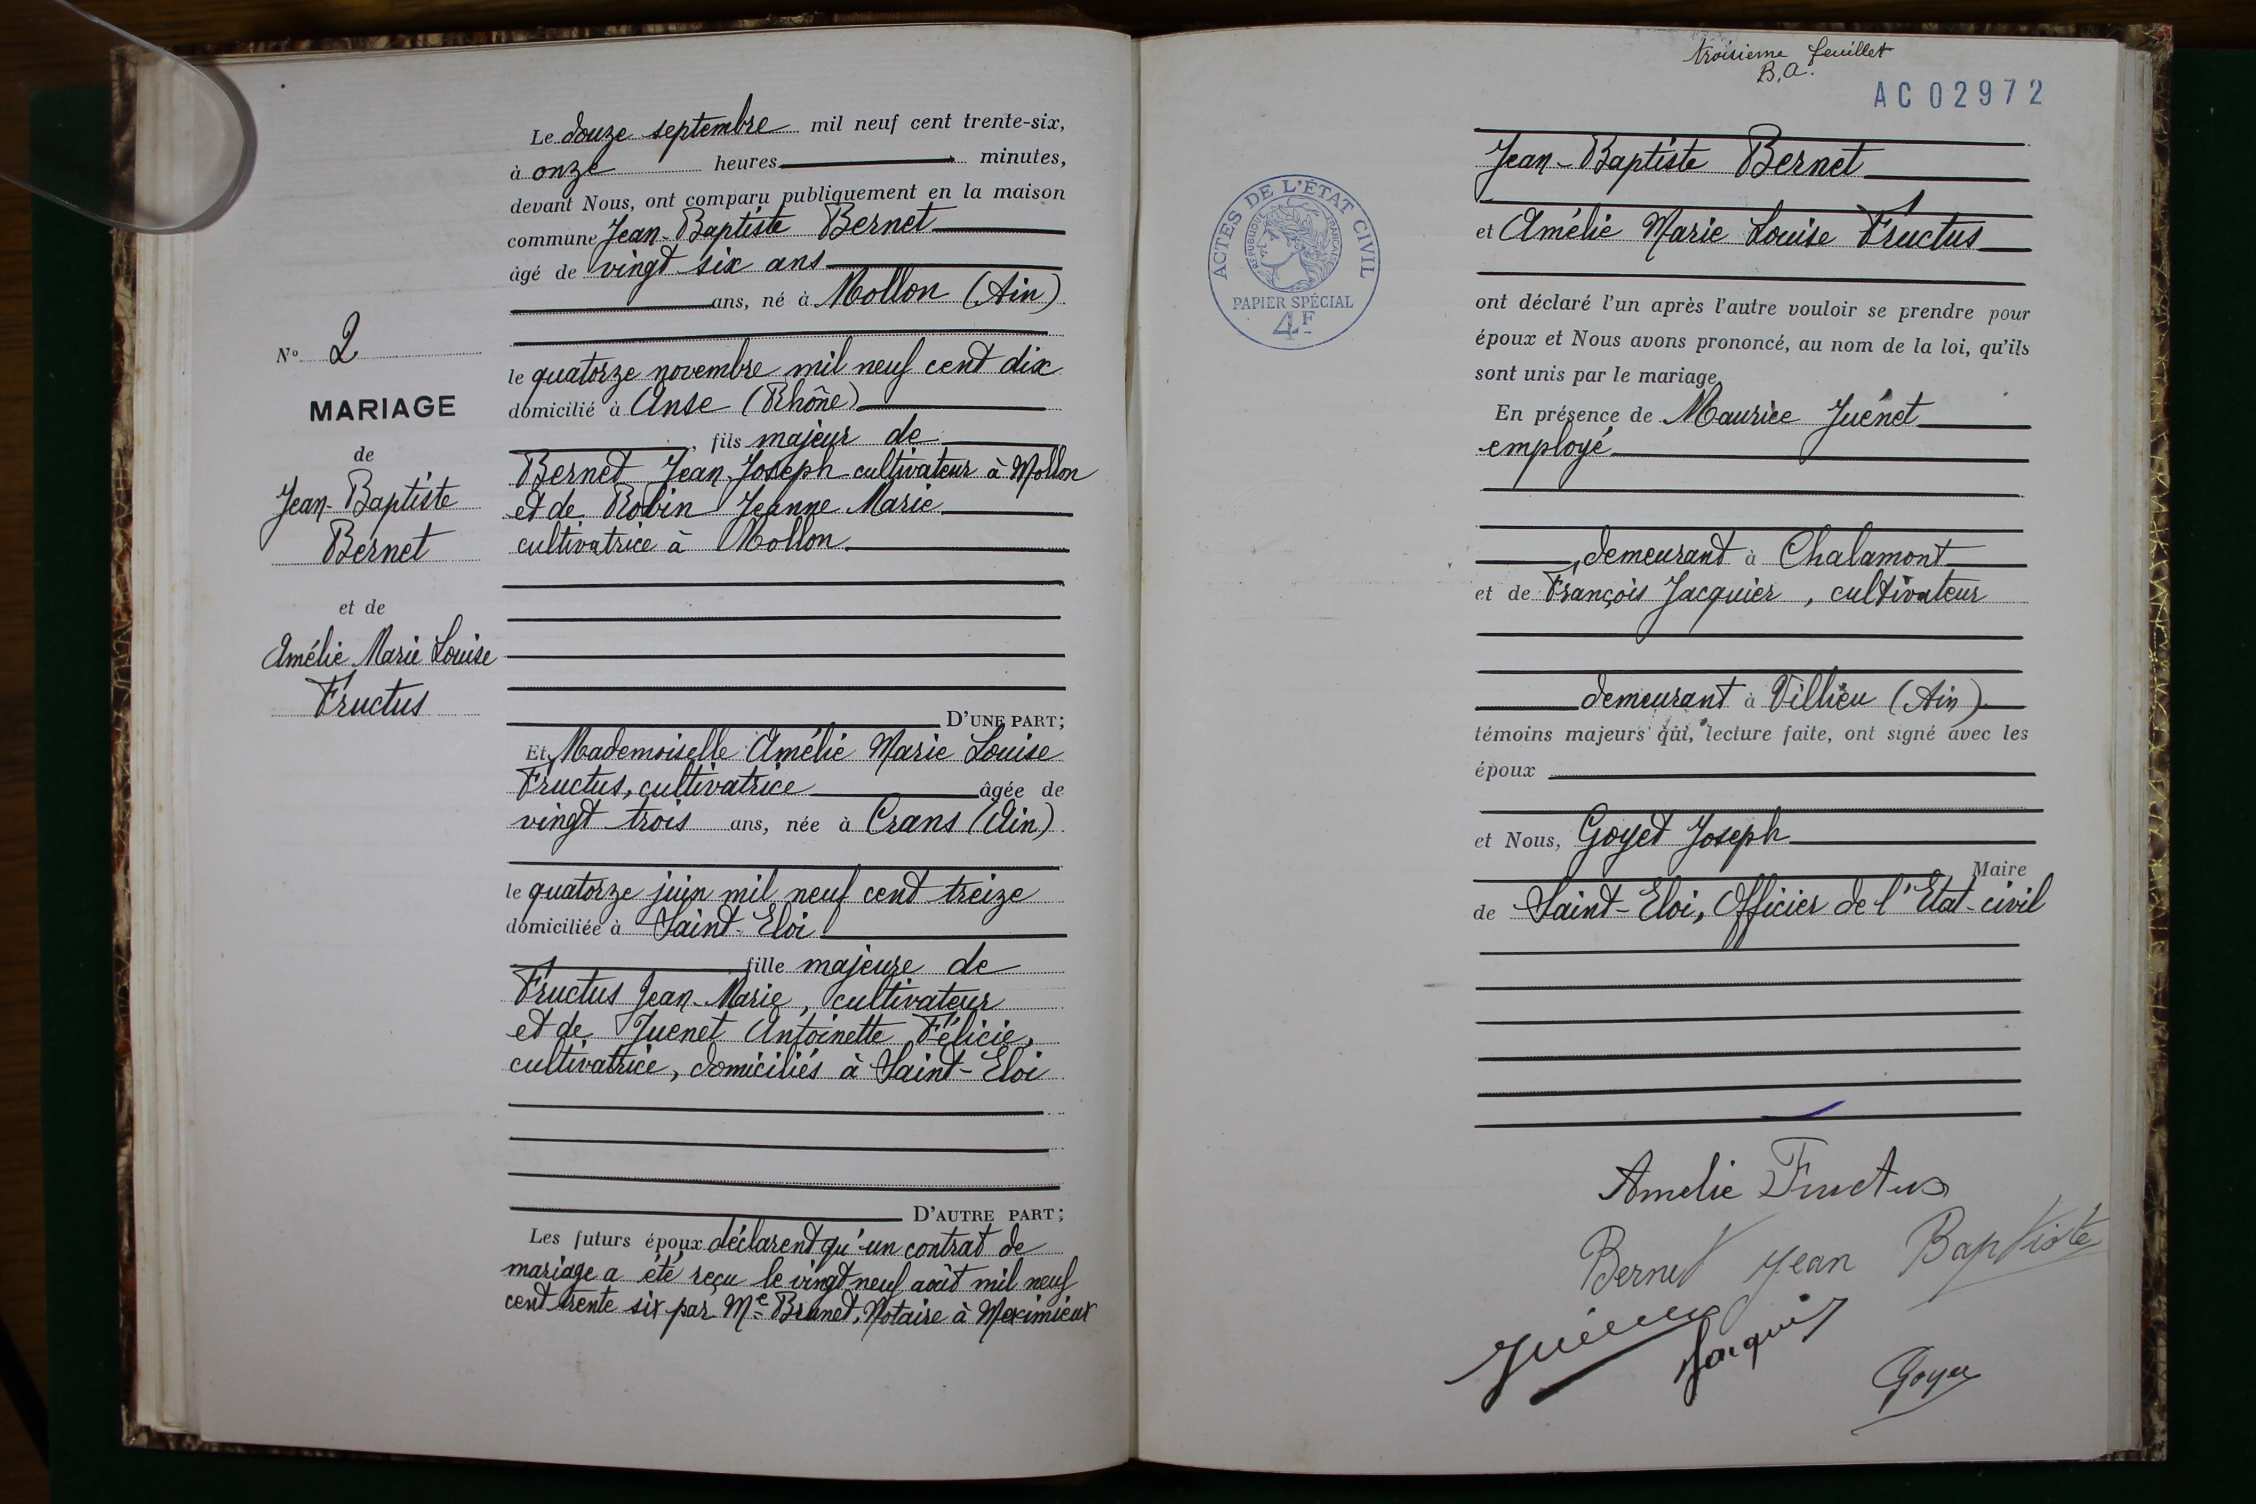 Le douze septembre mil neuf cent trente-six,
à onze heures minutes,
devant Nous, ont comparu publiquement en la maison
commune Jean-Baptiste Bernet
âgé de vingt six ans
ans, né à Mollon (Ain)
le quatorze novembre mil neuf cent dix
domicilié à Anse (Rhône)
, fils majeur de
Bernet Jean Joseph cultivateur à Mollon
et de Robin Jeanne Marie
cultivatrice à Mollon
D'UNE PART;
Et Mademoiselle Amélie Marie Louise
Fructus, cultivatrice âgée de
vingt trois ans, née à Crans (Ain)
le quatorze juin mil neuf cent treize
domiciliée à Saint-Eloi
fille majeure de
Fructus Jean-Marie, cultivateur
et de Juenet Antoinette Félicie,
cultivatrice, domiciliés à Saint-Eloi
D'AUTRE PART;
Les futurs époux déclarent qu'un contrat de
mariage a été reçu le vingt neuf août mil neuf
cent trente six par Me Brunet, Notaire à Meximieux
No 2
MARIAGE
de
Jean-Baptiste
Bernet
et de
Amélie Marie Louise
Fructus
troisième feuillet
B.A.
AC 02972
ACTES DE L'ÉTAT CIVIL
RÉPUBLIQUE FRANÇAISE
PAPIER SPÉCIAL
4F
Jean-Baptiste Bernet
et Amélie Marie Louise Fructus
ont déclaré l'un après l'autre vouloir se prendre pour
époux et Nous avons prononcé, au nom de la loi, qu'ils
sont unis par le mariage.
En présence de Maurice Juénet
employé
, demeurant à Chalamont
et de François Jacquier, cultivateur
demeurant à Villieu (Ain)
témoins majeurs qui, lecture faite, ont signé avec les
époux
et Nous, Goyet Joseph
Maire
de Saint-Eloi, Officier de l'Etat-civil
Amelie Fructus
Bernet Jean Baptiste
Juénet
Jacquier
Goyet